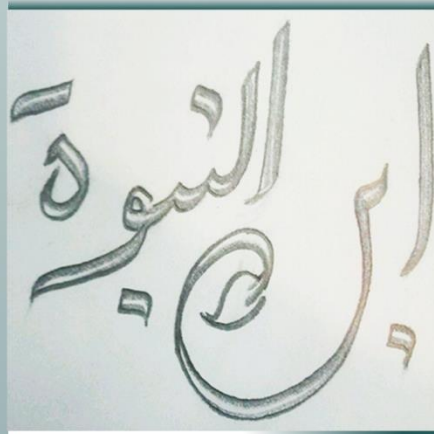 ابن النبوة